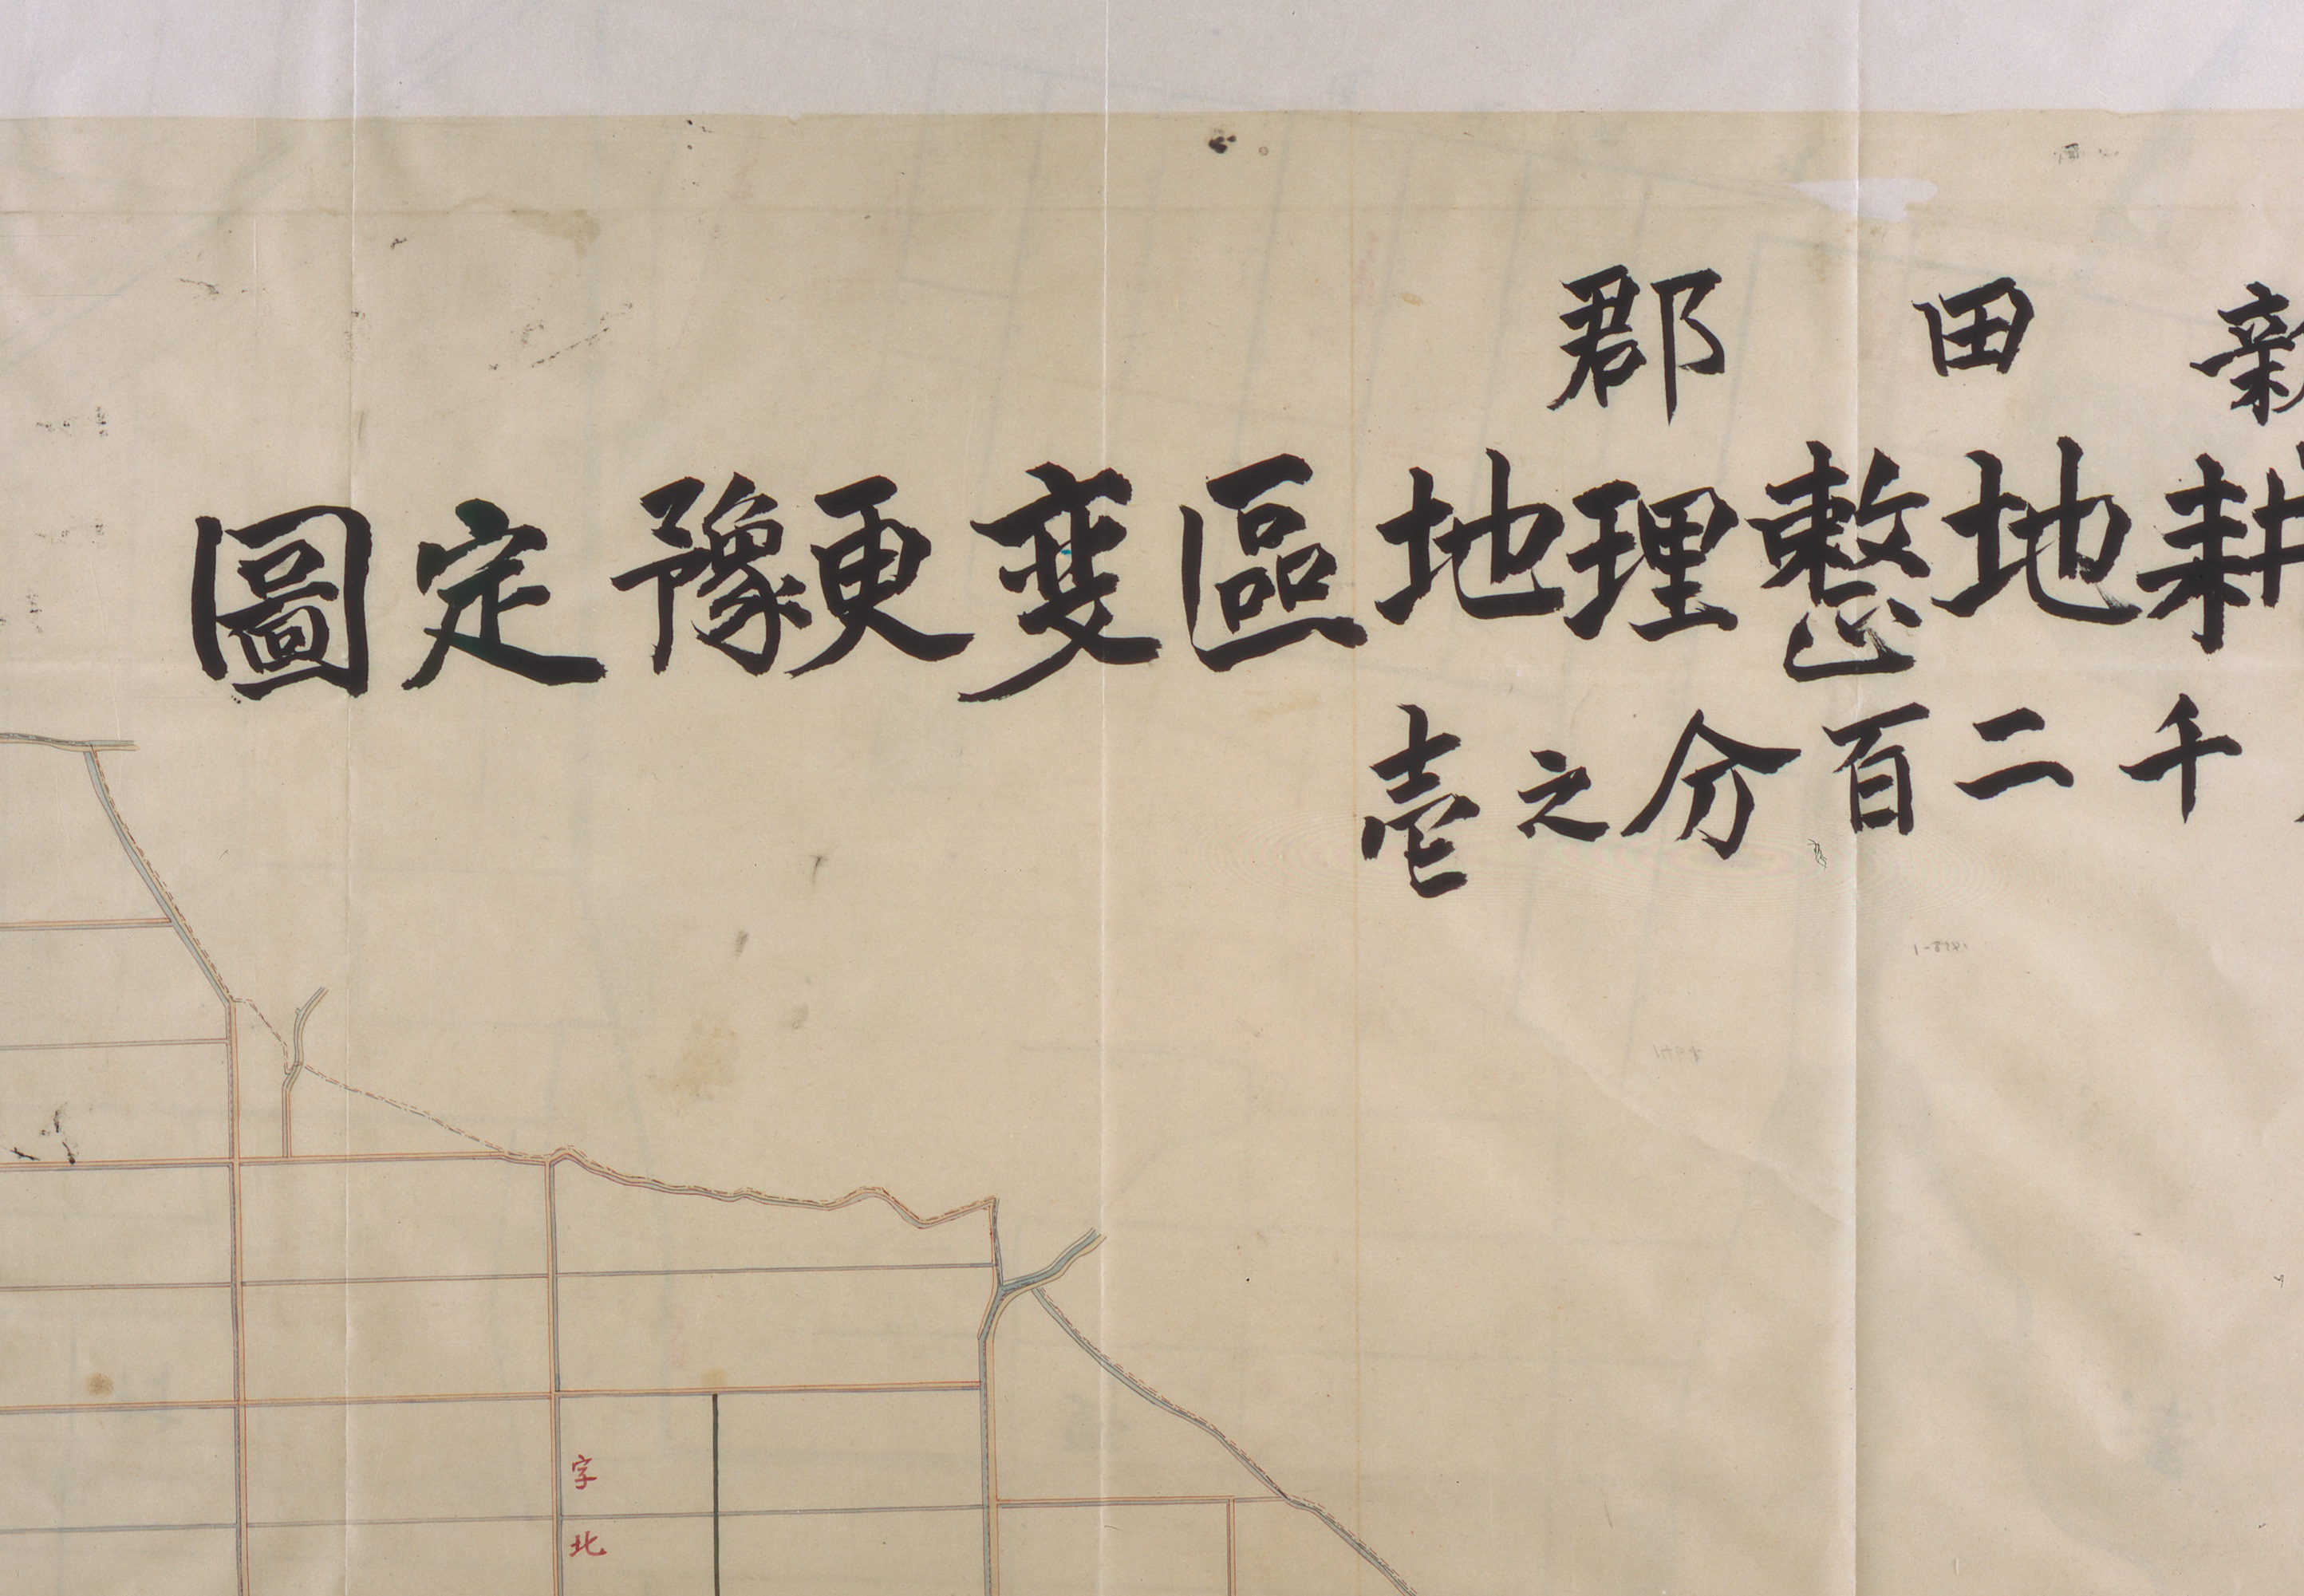 新田郡
耕地整理地區変更豫定圖
千二百分之壱
字北